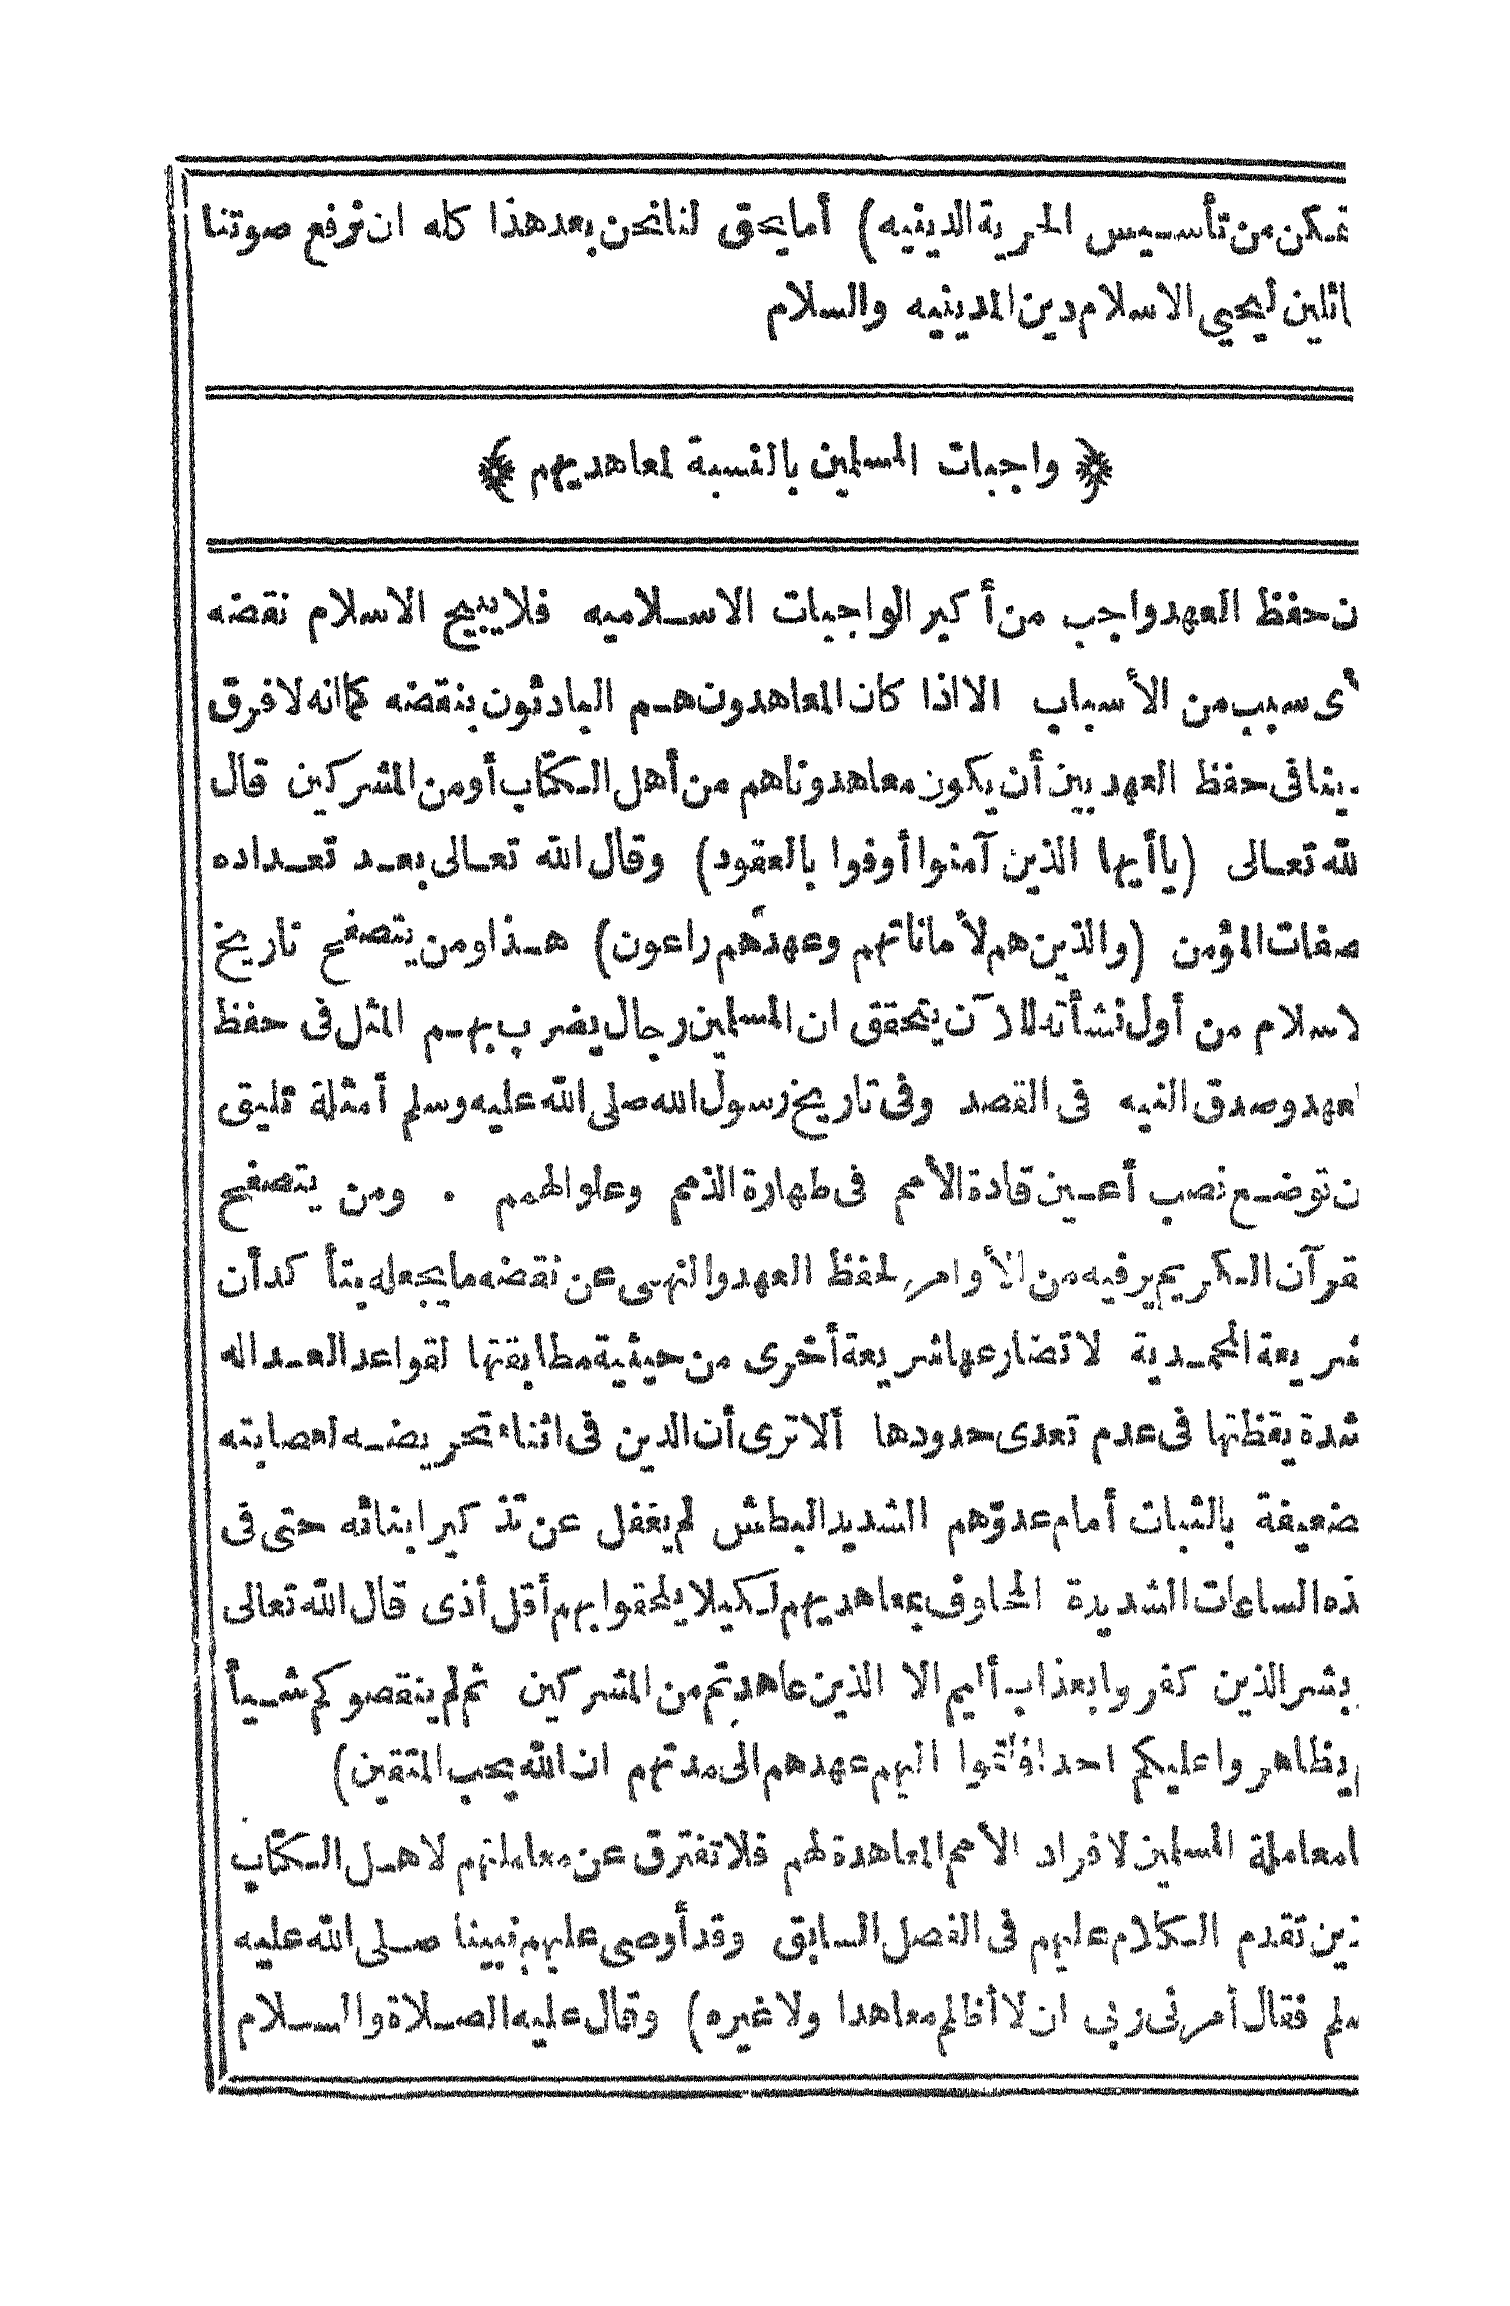 تمكن من تأسيس الحرية الدينيه) أما يحق لنا نحن بعد هذا كله ان نرفع صوتنا
ائلين ليحيي الاسلام دين المدينيه والسلام
﴿ واجبات المسلمين بالنسبة لمعاهديهم ﴾
ن حفظ العهد واجب من أكبر الواجبات الاسلاميه فلا يبيح الاسلام نقضه
لأى سبب من الأسباب الا اذا كان المعاهدون هم البادئون بنقضه كما انه لا فرق
يننا فى حفظ العهد بين أن يكون معاهدوناهم من أهل الكتاب أو من المشركين قال
لله تعالى (يا أيها الذين آمنوا أوفوا بالعقود) وقال الله تعالى بعد تعداده
صفات المؤمن (والذين هم لأماناتهم وعهدهم راعون) هذا ومن يتصفح تاريخ
لاسلام من أول نشأته للآن يتحقق ان المسلمين رجال يضرب بهم المثل فى حفظ
لعهد وصدق النيه فى القصد وفى تاريخ رسول الله صلى الله عليه وسلم أمثلة تليق
ن توضع نصب أعين قادة الأمم فى طهارة الذمم وعلو الهمم . ومن يتصفح
قرآن الكريم ير فيه من الأوامر لحفظ العهد والنهى عن نقضه ما يجعله يتأكد أن
شريعة المحمدية لا تضارعها شريعة أخرى من حيثية مطابقتها لقواعد العداله
شدة يقظتها فى عدم تعدى حدودها ألا ترى أن الدين فى اثناء تحريضه لعصابته
ضعيفة بالثبات أمام عدوّهم الشديد البطش لم يغفل عن تذكير ابنائه حتى فى
ذه الساعات الشديدة الحاوف بمعاهديهم لكيلا يلحقوا بهم أقل أذى قال الله تعالى
بشر الذين كفروا بعذاب أليم الا الذين عاهدتم من المشركين ثم لم ينقصوكم شيأ
يظاهروا عليكم احدا فأتموا اليهم عهدهم الى مدتهم ان الله يحب المتقين)
امعاملة المسلمين لافراد الأمم المعاهدة لهم فلا تفترق عن معاملتهم لاهل الكتاب
ذين تقدم الكلام عليهم فى الفصل السابق وقد أوصى عليهم نبينا صلى الله عليه
سلم فقال أمرنى ربى ان لا أظالم معاهدا ولا غيره) وقال عليه الصلاة والسلام